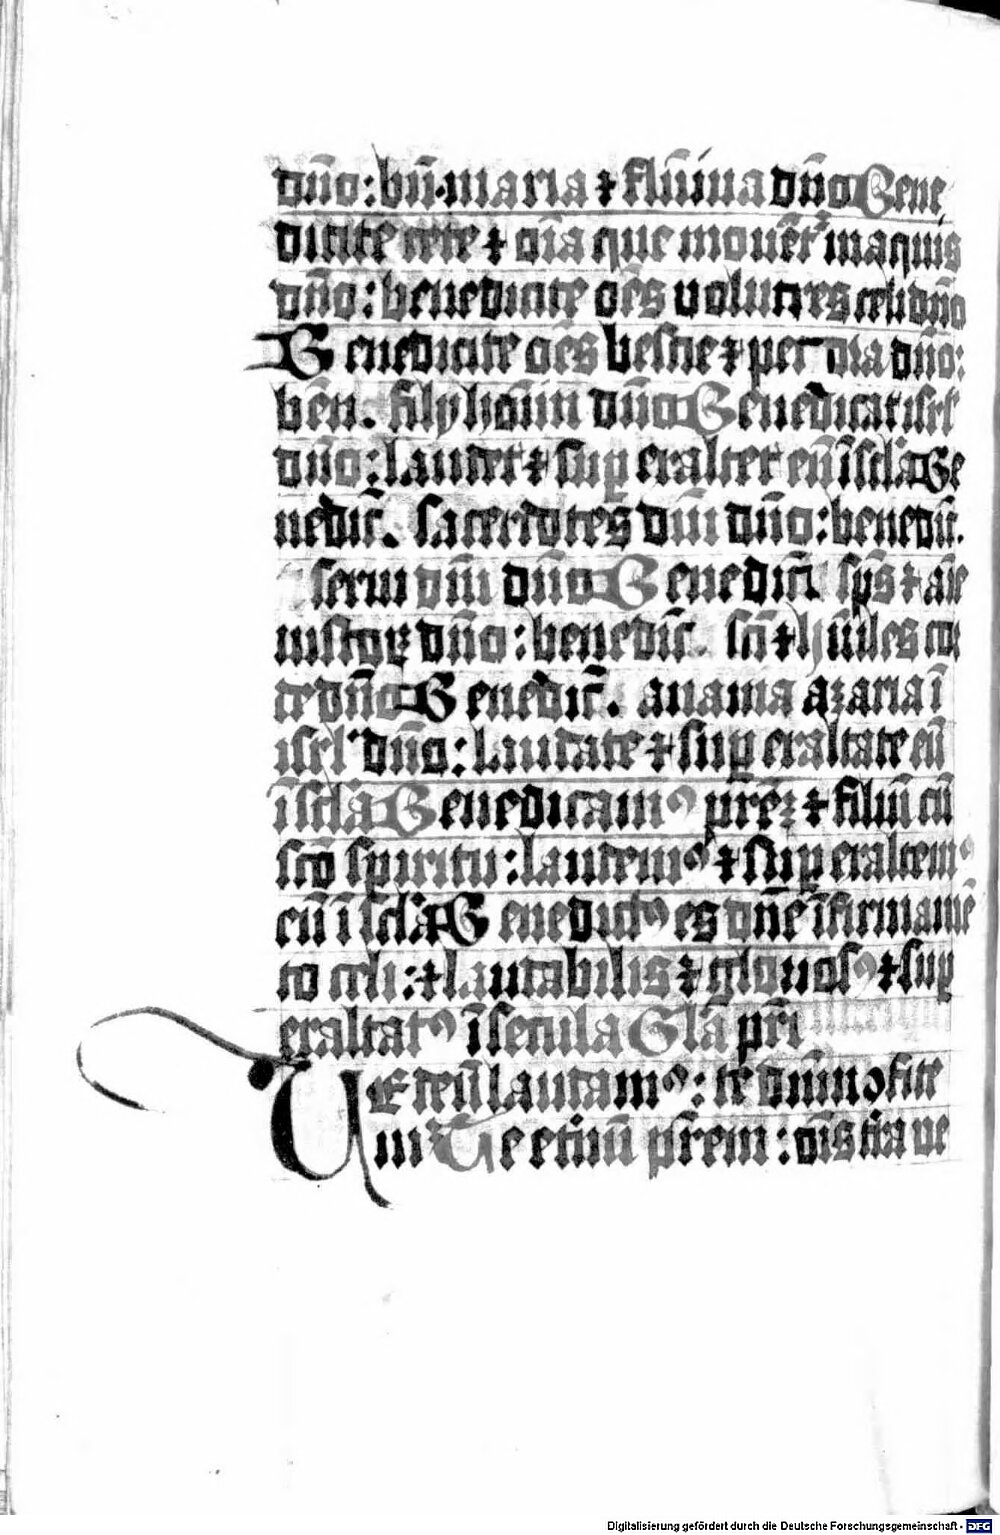 dn̄o: bn̄. maria ⁊ flūīna dn̄o Bene
dicite cete ⁊ oīa que mouēt᷑ in aquis
dn̄o: benedicite oēs uolucres celi dn̄o
Benedicite oēs bestie ⁊ pecora dn̄o:
bēn. filij hoīm dn̄o Benedicat isrl'
dn̄o: laudet ⁊ sup exaltet eū ī scl̄a Be
nedic̄. sacerdotes dn̄i dn̄o: benedic̄.
serui dn̄i dn̄o Benedic̄ sp̄s ⁊ aīe
iustoꝝ dn̄o: benedic̄. sc̄i ⁊ hūiles cor
de dn̄o Benedic̄. anania azaria ī
isrl' dn̄o: laudate ⁊ suꝑ exaltate eū
ī scl̄a Benedicamꝰ pr̄eꝫ ⁊ filiū cū
scō spiritu: laudemꝰ ⁊ suꝑ exaltemꝰ
eū ī scl̄a Benedictꝰ es dn̄e ī firmamē
to celi: ⁊ laudabilis ⁊ gloriosꝰ ⁊ suꝑ
exaltatꝰ ī secula Gl̄a pr̄i
TE deū laudamꝰ: te dn̄m ꝯfite
mur Te et̄nū pr̄em: oīs t̄ra ue
Digitalisierung gefördert durch die Deutsche Forschungsgemeinschaft - DFG